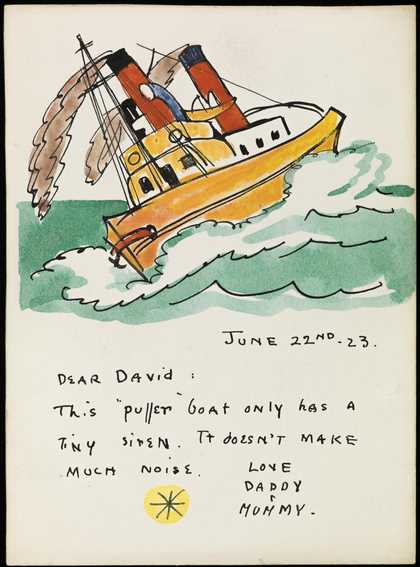 JUNE 22ND - 23.
DEAR DAVID :
This "puller" boat only has a
tiny siren. It doesn't make
much noise. Love
Daddy
+
Mummy -